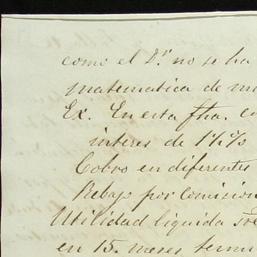 como el Dr. no se ha
matematica de
Ex. En esta fha.
interes de 1½%
Cobro en diferentes
Rebajo por comision
Utilidad liquida
en 15. meses